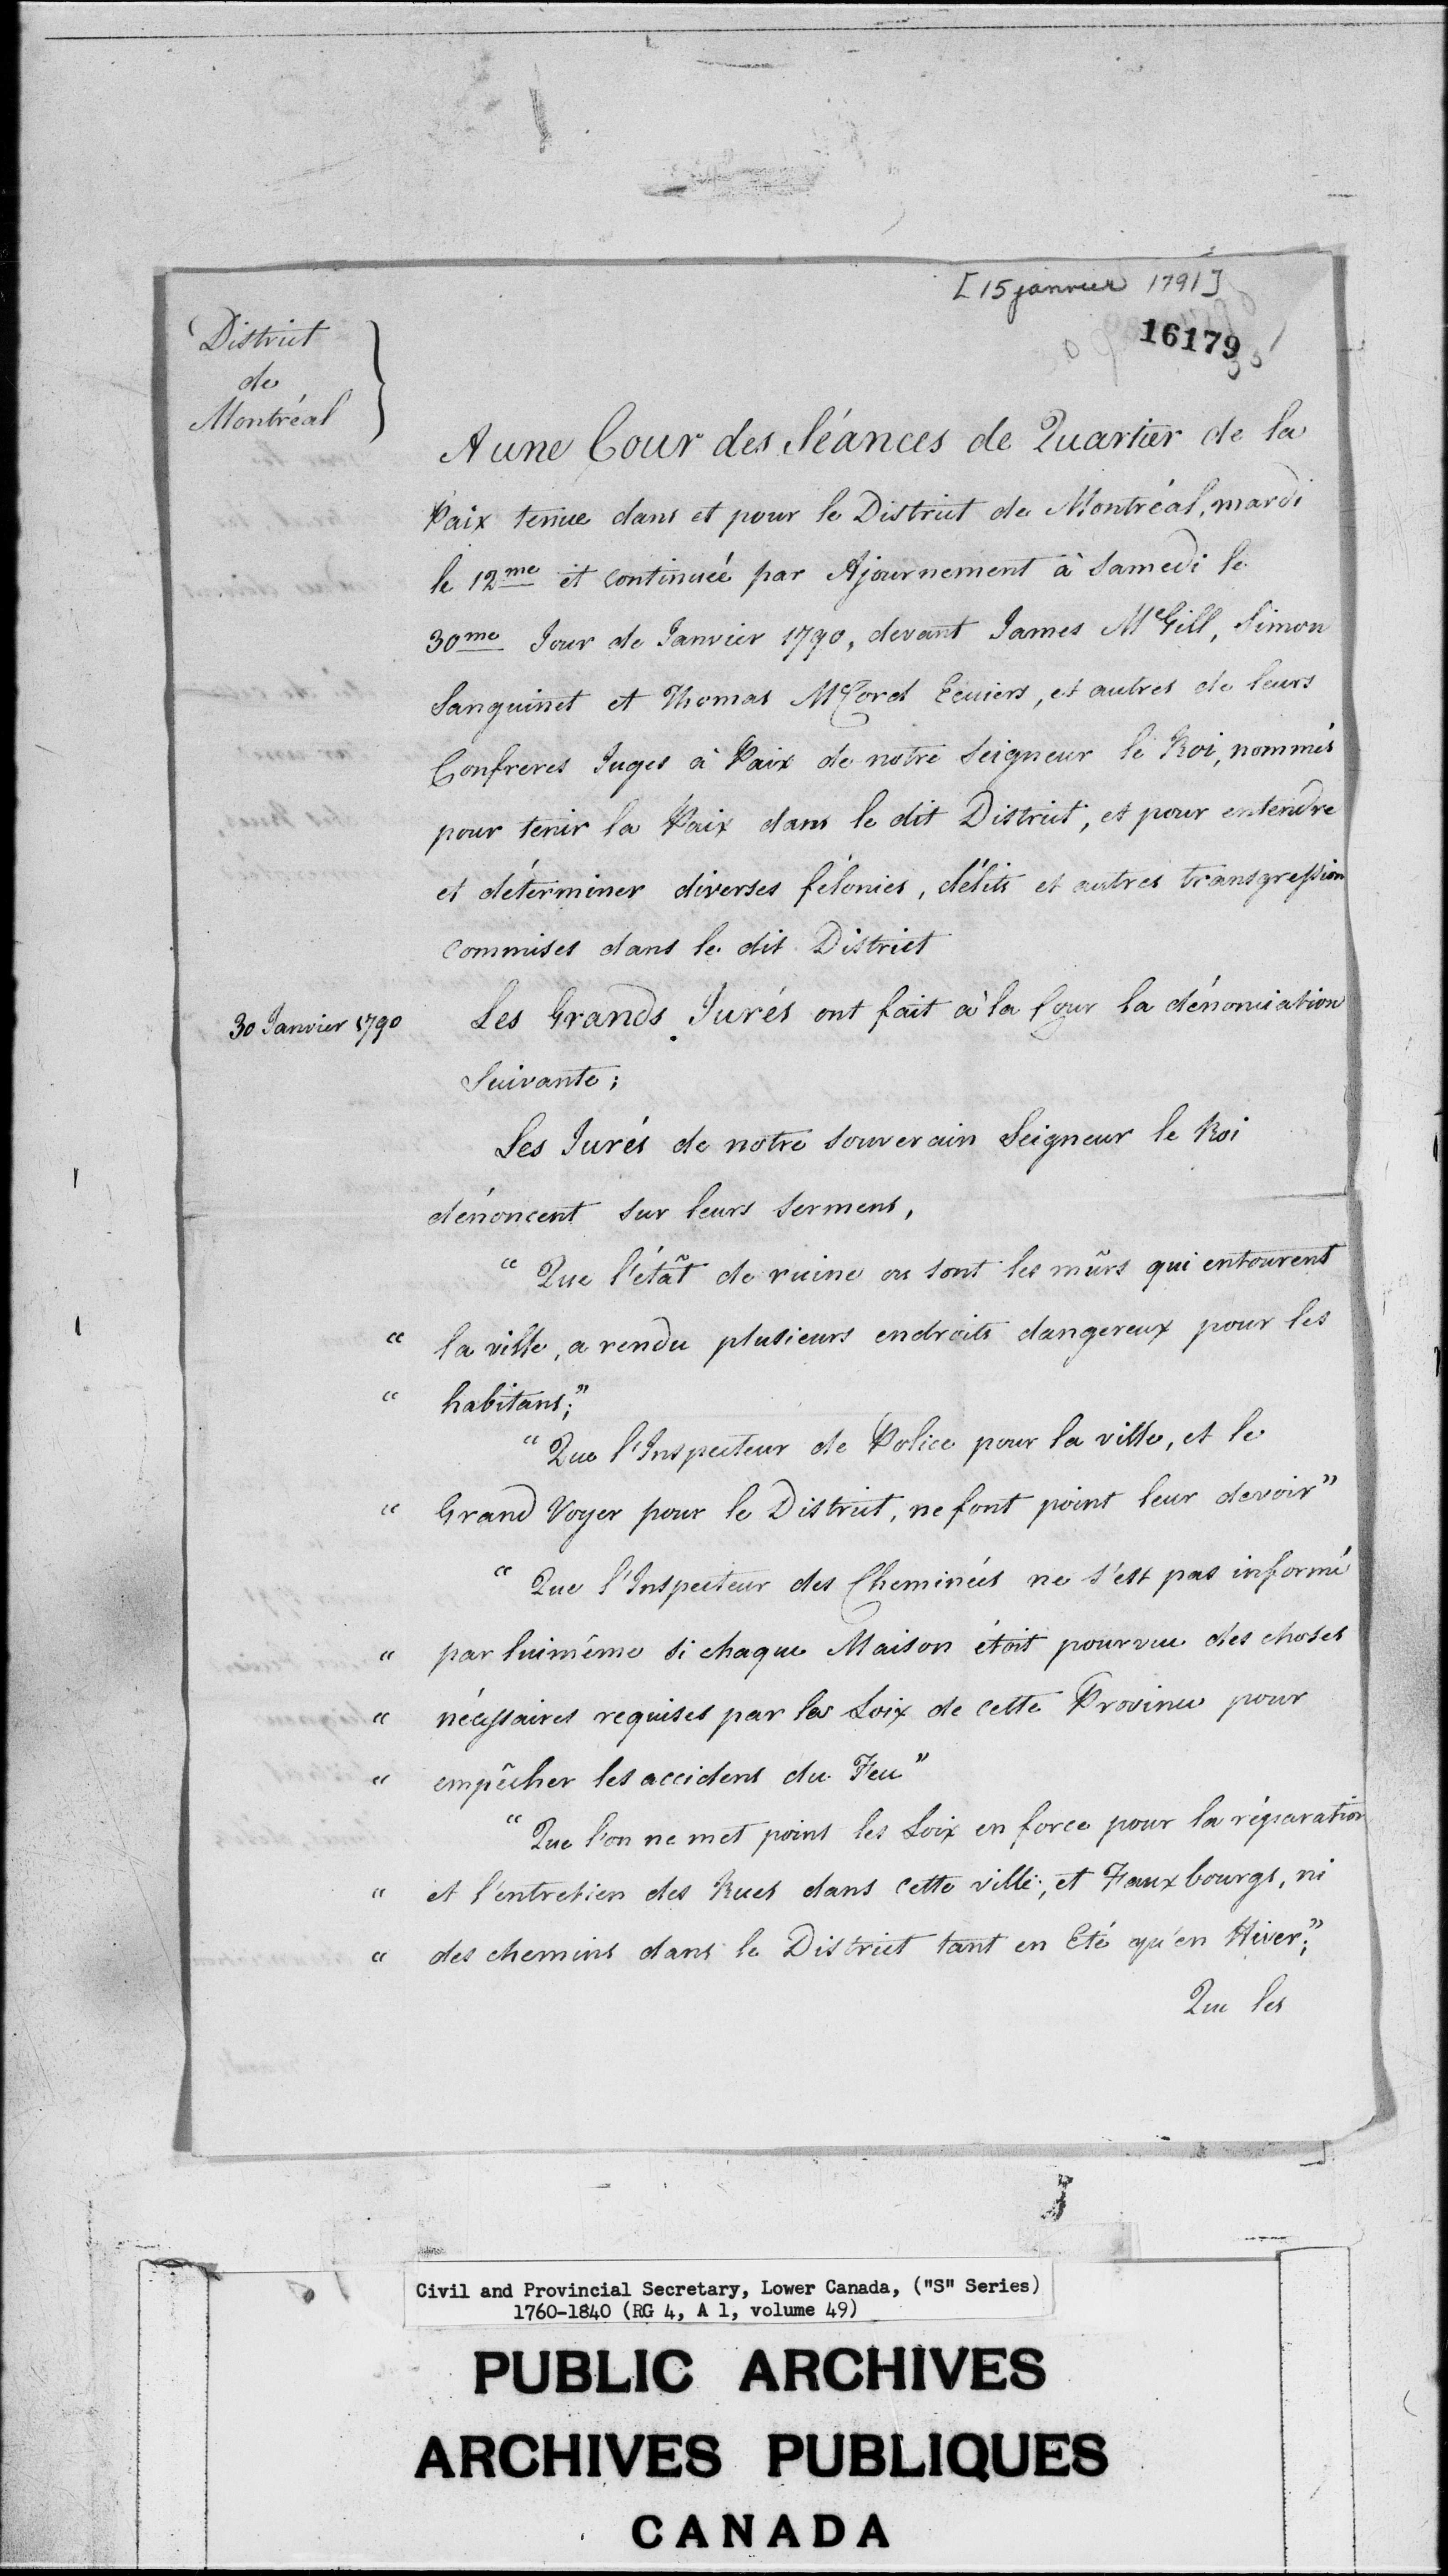 [15 janvier 1791]
16179
District
de
Montréal
A une Cour des Séances de Quartier de la
Paix tenue dans et pour le District de Montréal, mardi
le 12me et continuée par Ajournement à Samedi le
30me Jour de Janvier 1790, devant James McGill, Simon
Sanguinet et Thomas McCord Ecuiers, et autres de leurs
Confreres Juges à Paix de notre Seigneur le Roi, nommés
pour tenir la Paix dans le dit District, et pour entendre
et déterminer diverses félonies, délits et autres transgression
commises dans le dit District
30 Janvier 1790
Les Grands Jurés ont fait à la Cour la dénonciation
Suivante;
Les Jurés de notre Souverain Seigneur le Roi
dénoncent sur leurs sermens,
“ Que l'état de ruine ou sont les mûrs qui entourent
“ la ville, a rendu plusieurs endroits dangereux pour les
“ habitans;”
“ Que l'Inspecteur de Police pour la ville, et le
“ Grand Voyer pour le District, ne font point leur devoir”
“ Que l'Inspecteur des Cheminées ne s'est pas informé
“ par luimême si chaque Maison étoit pourvue des choses
“ nécessaires requises par les Loix de cette Province pour
“ empêcher les accidens du Feu”
“ Que l'on ne met point les Loix en force pour la réparation
“ et l'entretien des Rues dans cette ville, et Fauxbourgs, ni
“ des chemins dans le District tant en Eté qu'en Hiver;”
Que les
Civil and Provincial Secretary, Lower Canada, ("S" Series)
1760-1840 (RG 4, A 1, volume 49)
PUBLIC ARCHIVES
ARCHIVES PUBLIQUES
CANADA